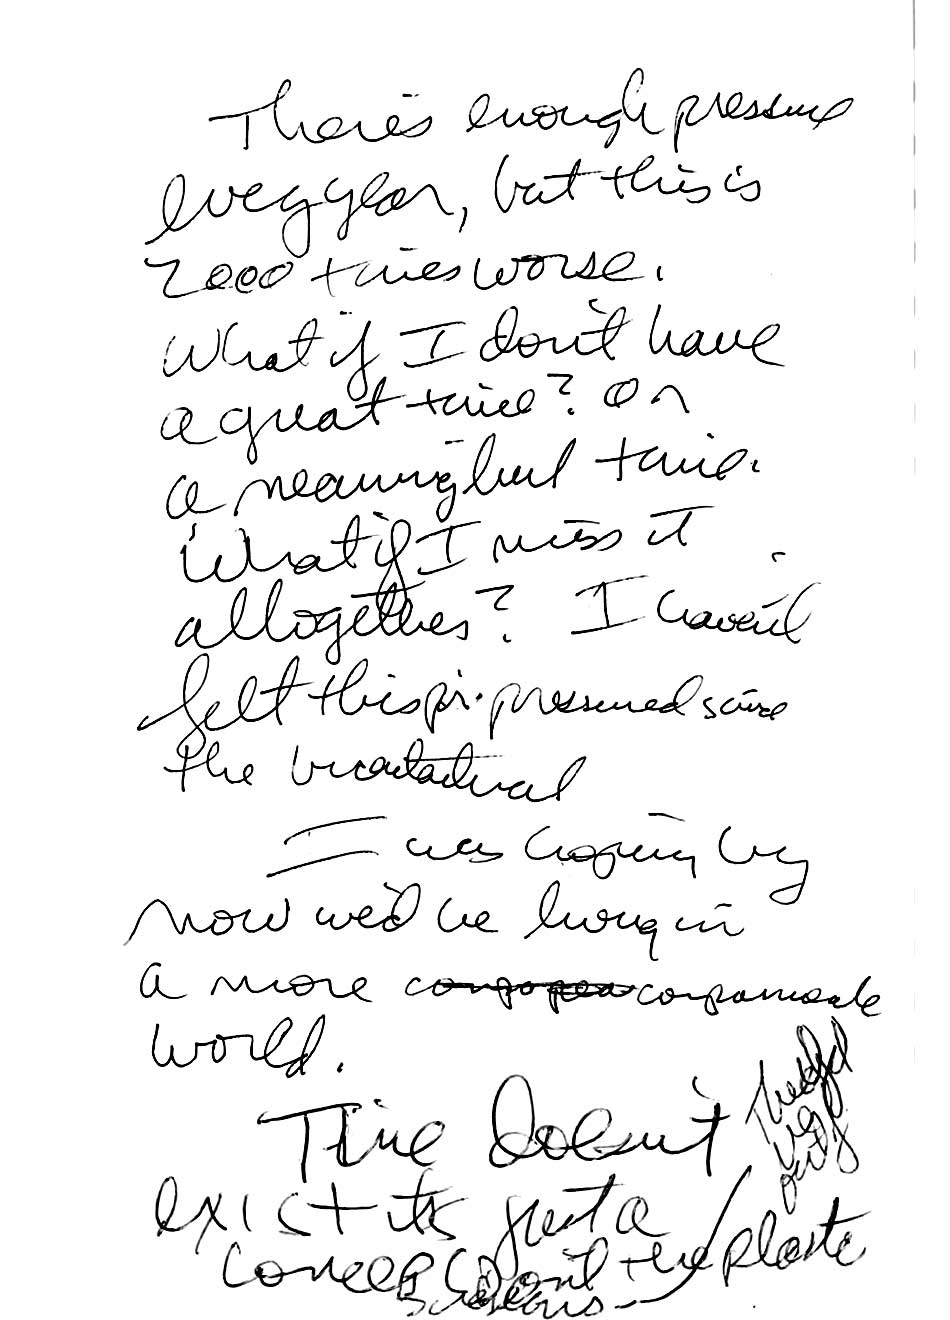 There's enough pressure
every year, but this is
2000 times worse.
What if I don't have
a great time? Or
a meaningful time.
What if I miss it
altogether? I haven't
felt this pressured since
the bicentennial
I was hoping by
now we'd be living in
a more compassionate
world.
Time doesn't
exist its just a
concept Don't the plastic